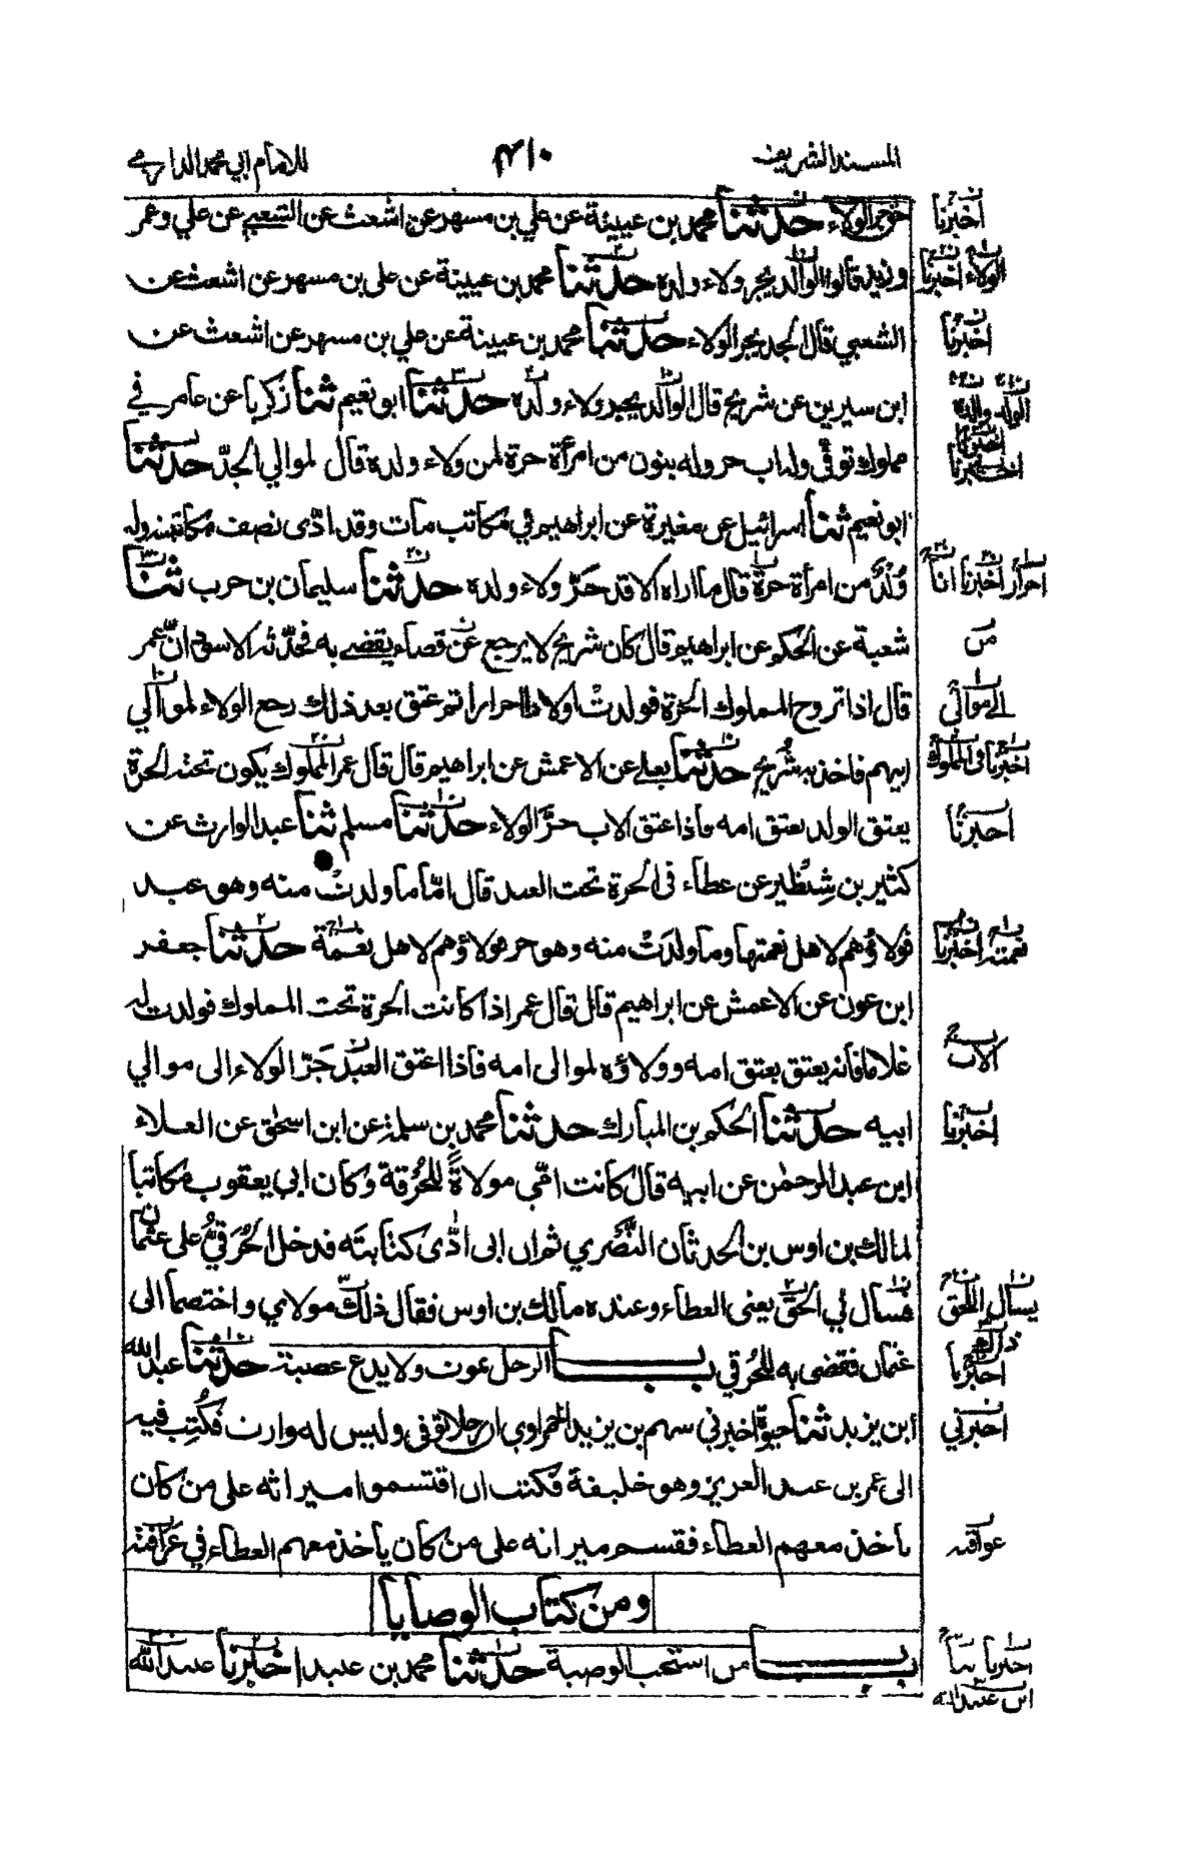 المسند الشريف ٤١٠ للامام ابي محمد الدارمي
حق جر الولاء حدثنا محمد بن عيينة عن علي بن مسهر عن اشعث عن الشعبي عن علي وعمر
وزيد قالوا الوالد يجر ولاء ولده حدثنا محمد بن عيينة عن علي بن مسهر عن اشعث عن
الشعبي قال الجد يجر الولاء حدثنا محمد بن عيينة عن علي بن مسهر عن اشعث عن
ابن سيرين عن شريح قال الوالد يجر ولاء ولده حدثنا ابو نعيم ثنا زكريا عن عامر في
مملوك توفي وله اب حر وله بنون من امرأة حرة لمن ولاء ولده قال لموالي الجد حدثنا
ابو نعيم ثنا اسرائيل عن مغيرة عن ابراهيم في مكاتب مات وقد ادى نصف مكاتبته وله
وُلْدٌ من امرأة حرة قال ما اراه الا قد جَرَّ ولاء ولده حدثنا سليمان بن حرب ثنا
شعبة عن الحكم عن ابراهيم قال كان شريح لا يرجع عن قضاء يقضي به فحدّثه الاسود انّ عمر
قال اذا تزوج المملوك الحرة فولدتْ اولادا احرارا ثم عتق بعد ذلك رجع الولاء لموالي
ابيهم فاخذ به شُريح حدثنا يعلى عن الاعمش عن ابراهيم قال قال عمر المملوك يكون تحته الحرة
يعتق الولد بعتق امه فاذا عتق الاب جرَّ الولاء حدثنا مسلم ثنا عبد الوارث عن
كثير بن شِنْظير عن عطاء في الحرة تحت العبد قال امّا ما ولدتْ منه وهو عبد
فولاؤهم لاهل نعمتها وما ولدَتْ منه وهو حر فولاؤهم لاهل نعمته حدثنا جعفر
ابن عون عن الاعمش عن ابراهيم قال قال عمر اذا كانت الحرة تحت المملوك فولدت له
غلاما فانه يعتق بعتق امه وولاؤه لموالى امه فاذا اعتق العبد جَرّ الولاء الى موالي
ابيه حدثنا الحكم بن المبارك حدثنا محمد بن سلمة عن ابن اسحق عن العلاء
ابن عبد الرحمٰن عن ابيه قال كانت امّي مولاةً للحُرقة وكان ابى يعقوب مكاتبا
لمالك بن اوس بن الحدثان النَّصْري ثم ان ابى ادّى كتابته فدخل الحُرَقيُّ على عثمان
فسأل لي الحَقّ يعنى العطاء وعنده مالك بن اوس فقال ذلك مولاي واختصما الى
عثمان فقضى به للحُرقي بــاب الرجل يموت ولا يدع عصبة حدثنا عبد الله
ابن يزيد ثنا حيوة اخبرني سهم بن يزيد الحمراوي ان رجلا توفى وليس له وارث فكُتِب فيه
الى عمر بن عبد العزيز وهو خليفة فكتب ان اقتسموا ميراثه على من كان
يأخذ معهم العطاء فقسم ميراثه على من كان يأخذ معهم العطاء في عرافته
ومن كتاب الوصايا
بــاب من استحب الوصية حدثنا محمد بن عبيد اخبرنا عبيد الله
اخبرنا
الولاء اخبرنا
اخبرنا
الولد والده
اخبرنا
اخبرنا
احرار اخبرنا انا
من
الى موالي
اخبرنا في المملوك
اخبرنا
نعمته اخبرنا
الاب
اخبرنا
يسأل اللحق
ذلك
اخبرنا
اخبرني
عرافته
اخبرنا ثنا
ابن عبد الله